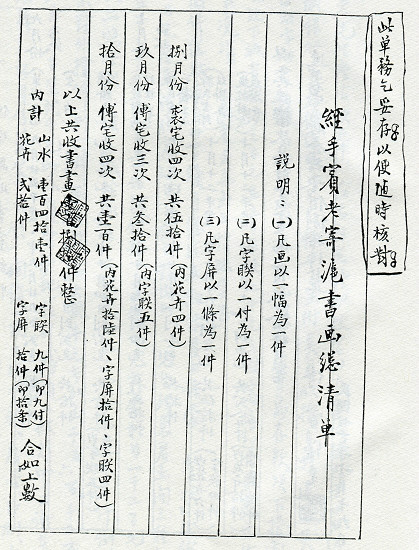 此单務乞妥存以便随時核對
經手賓老寄滬書画總清单
說明：(一)凡画以一幅為一件
(二)凡字聯以一付為一件
(三)凡字屏以一條為一件
捌月份 裘宅收四次 共伍拾件(内花卉四件)
玖月份 傅宅收三次 共叁拾件(内字联五件)
拾月份 傅宅收四次 共壹百件(内花卉拾陸件、字屏拾件、字联四件)
以上共收書畫壹百捌拾件整
内計 山水 壹百四拾壹件 字联 九件(即九付)
花卉 弍拾件 字屏 拾件(即拾条) 合如上數